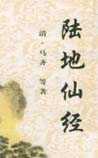 陆地仙经
清·马齐 等著